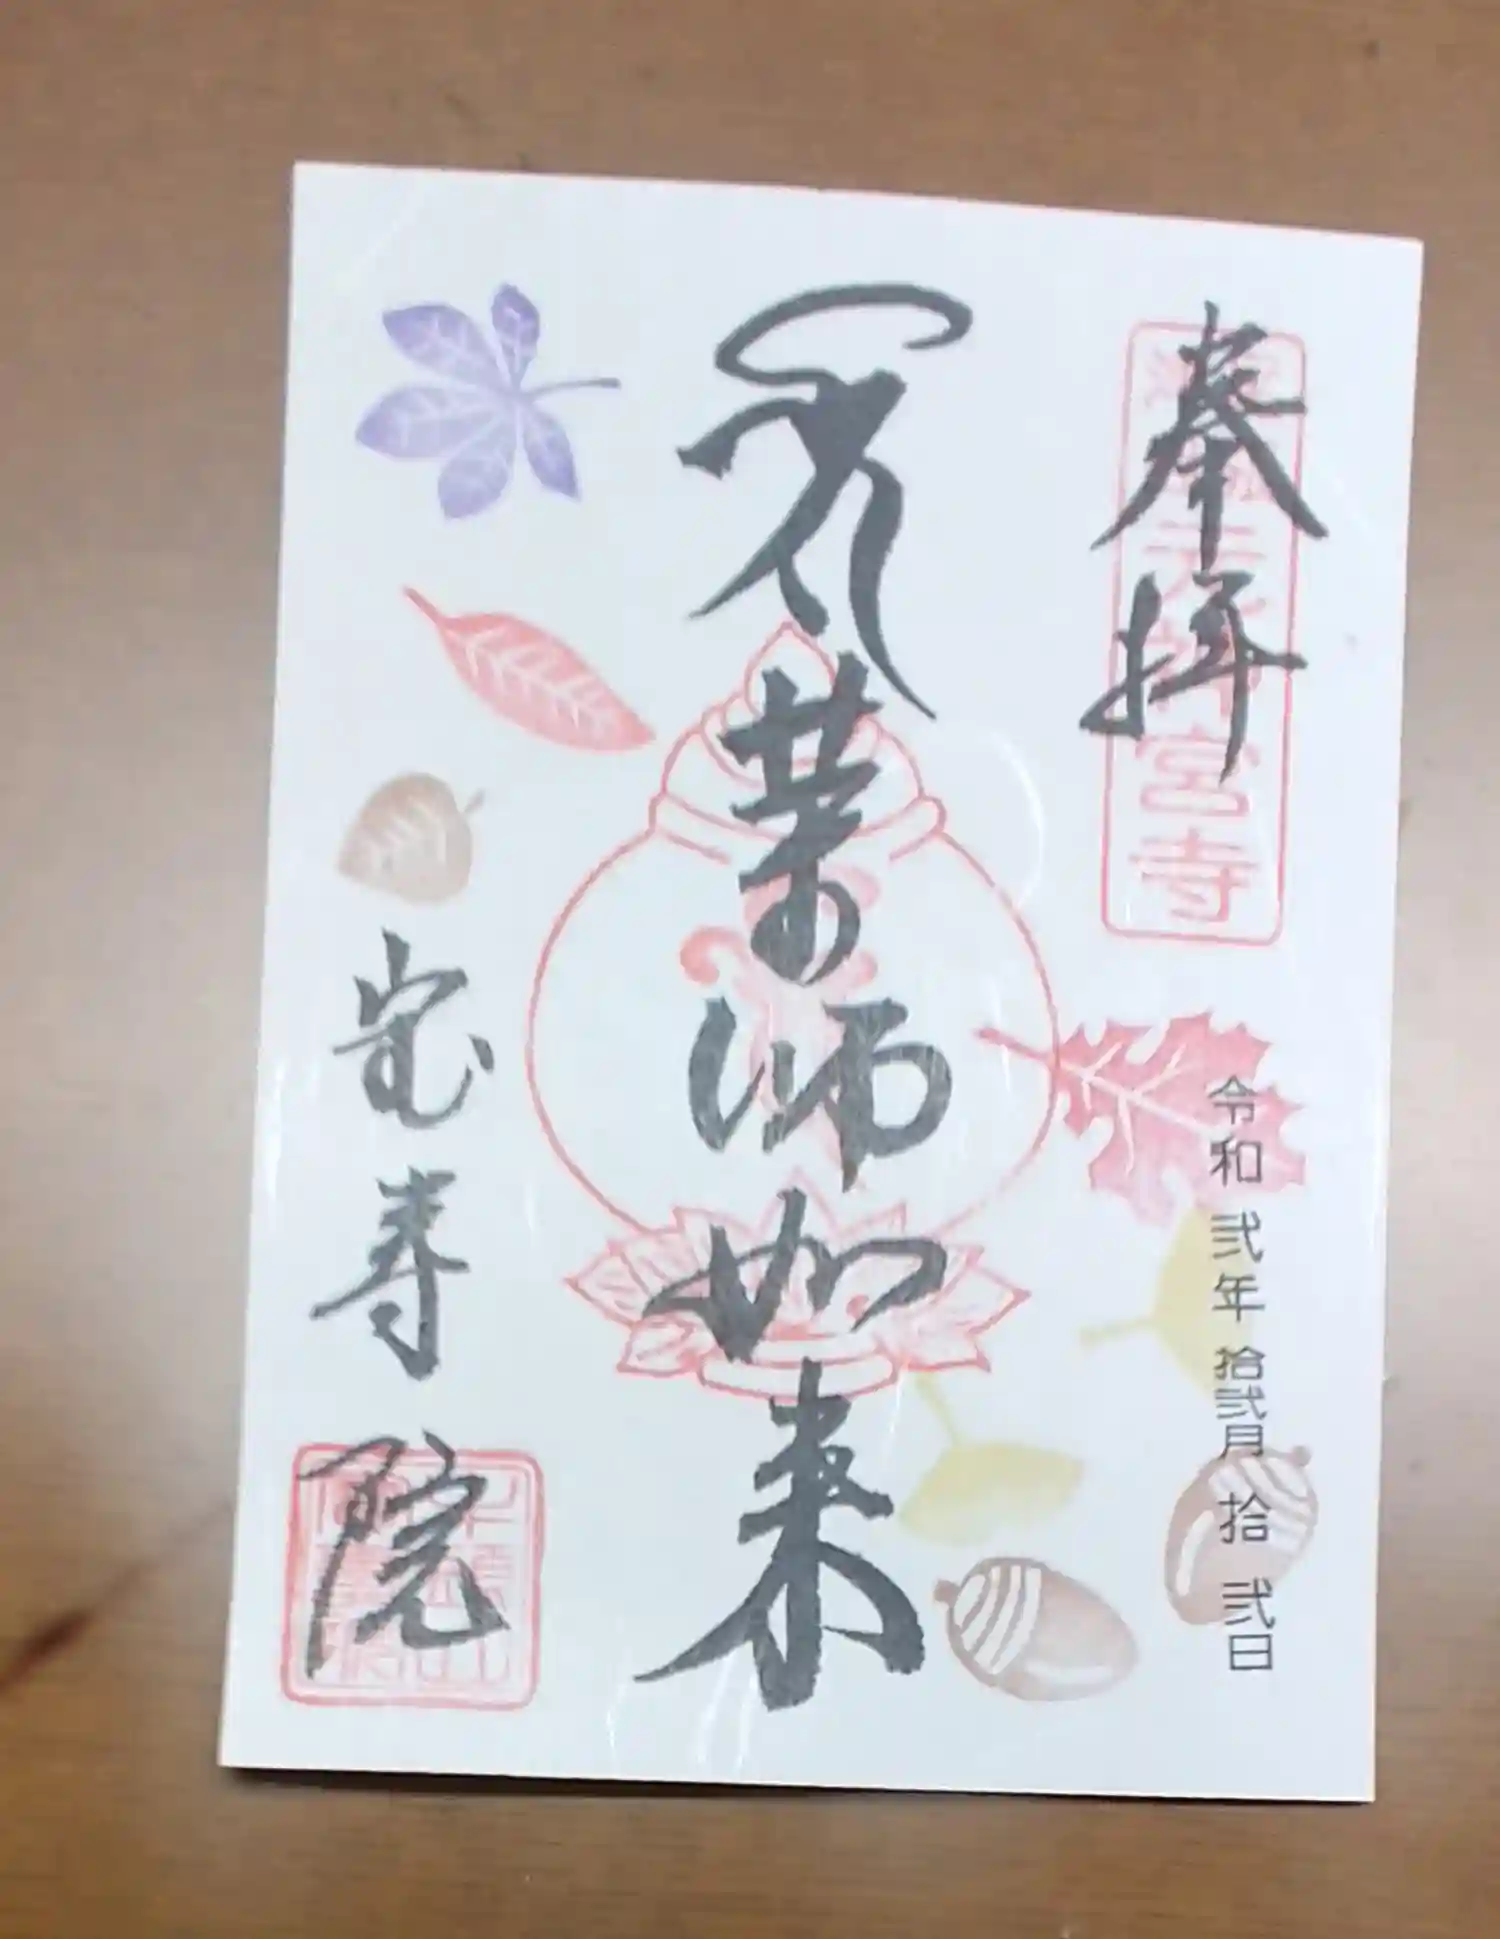 奉拝
天神宮寺
令和弐年拾弐月拾弐日
薬師如来
宝寿院